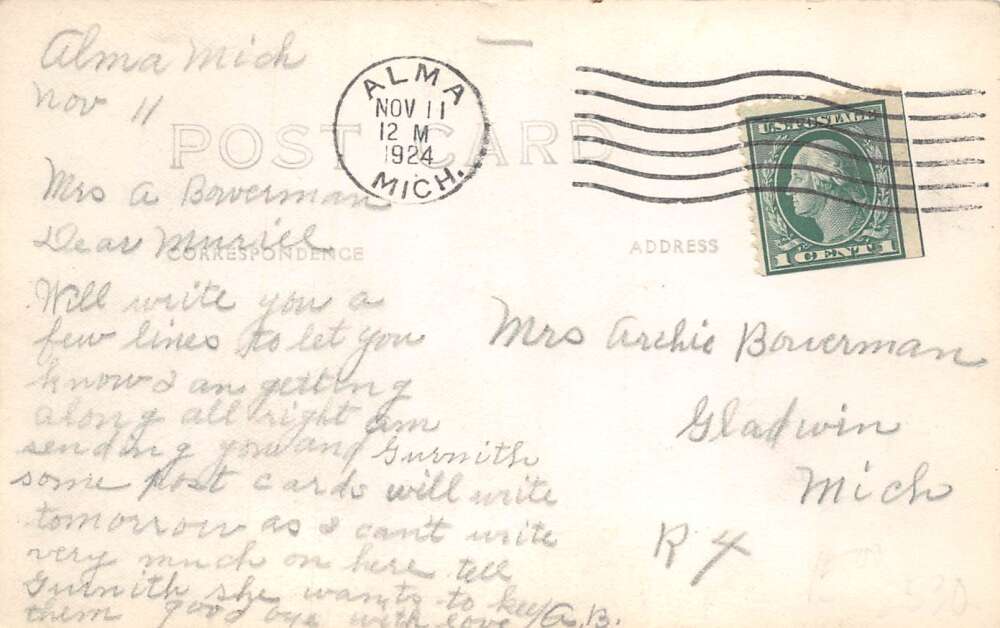 Alma Mich
Nov 11
POST CARD
ALMA
NOV 11
12 M
1924
MICH.
U.S. POSTAGE
1 CENT 1
Mrs A Bowerman
Dear Muriel
CORRESPONDENCE
ADDRESS
Will write you a
few lines to let you
know I am getting
along all right am
sending you and Gurnith
some post cards will write
tomorrow as I can't write
very much on here tell
Gurnith she wants to keep
them good bye with love A.B.
Mrs Archie Bowerman
Gladwin
Mich
R 4